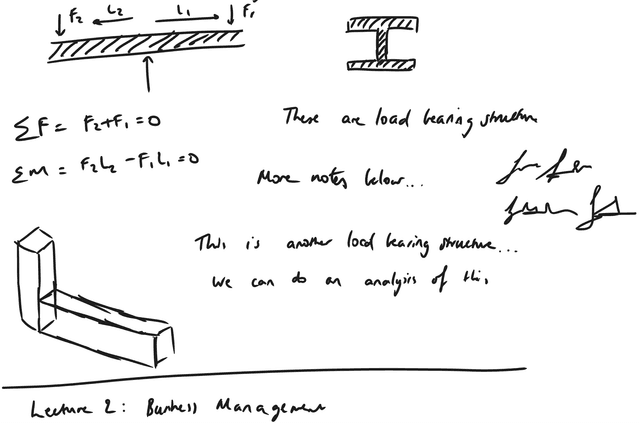 F₂ L₂ L₁ F₁
ΣF = F₂+F₁ = 0
ΣM = F₂L₂ - F₁L₁ = 0
These are load bearing structure
More notes below...
This is another load bearing structure...
We can do an analysis of this
Lecture 2: Business Management